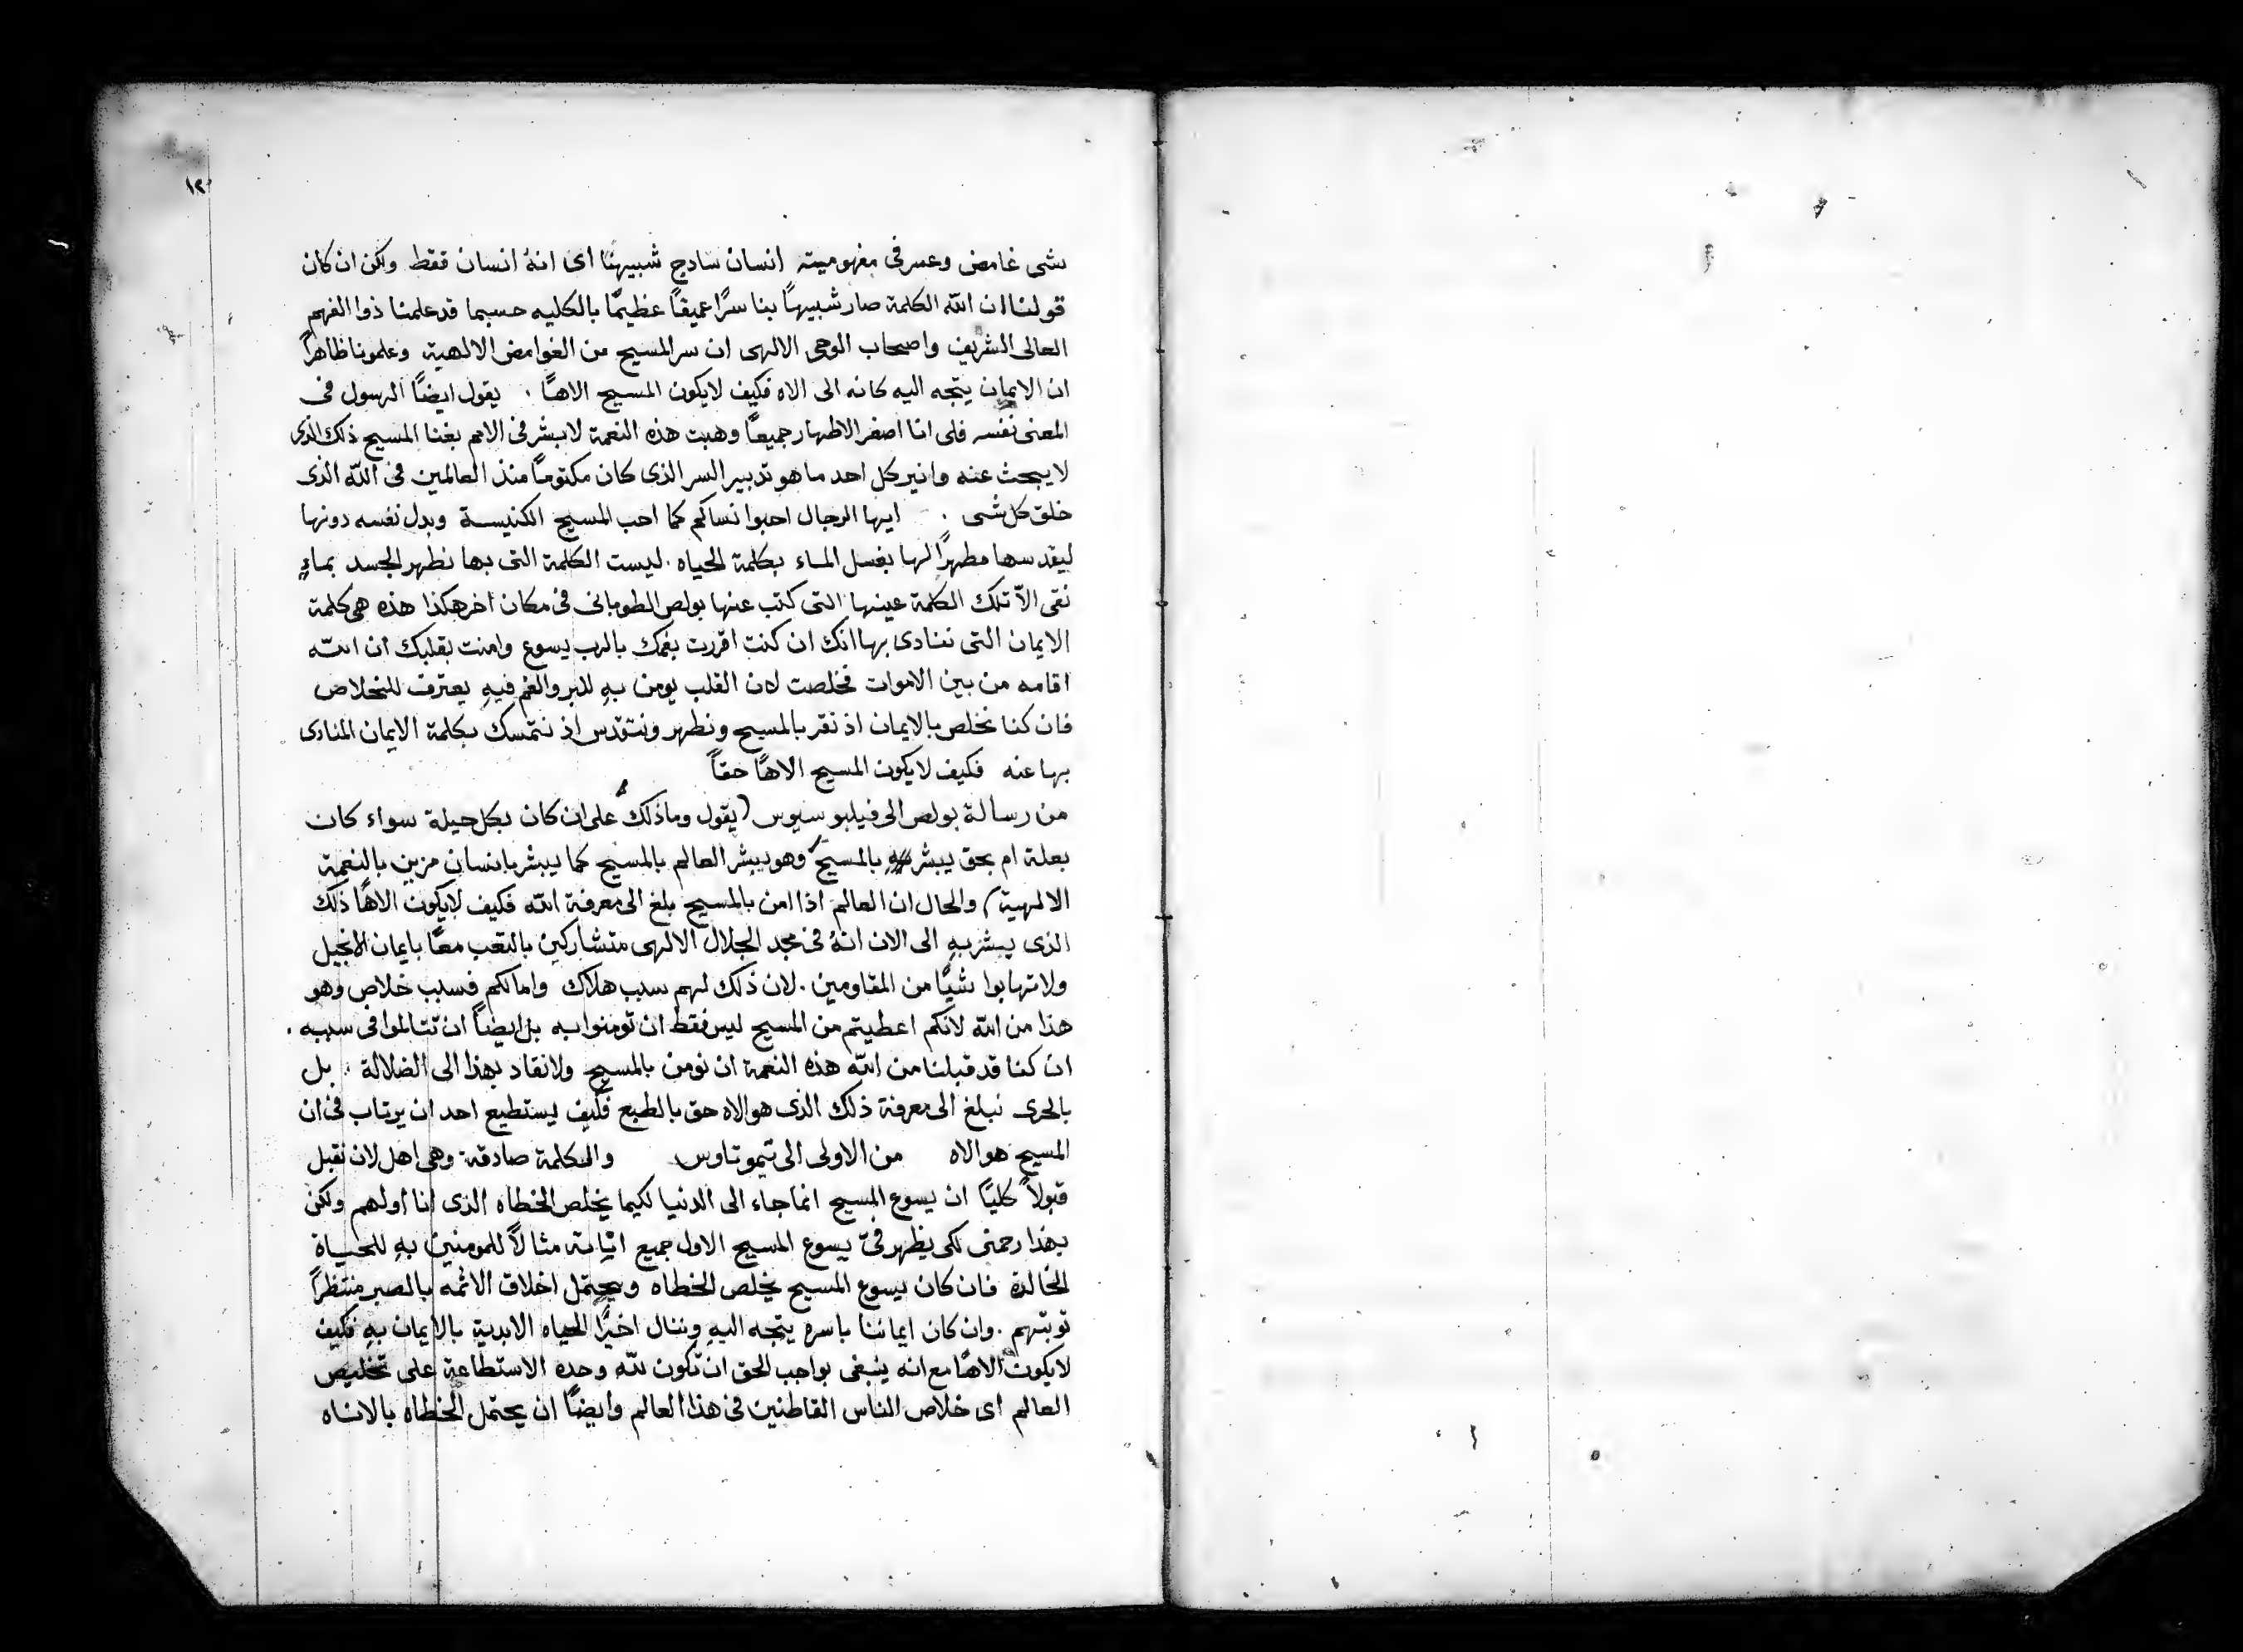 ١٢
شى غامض وعسر فى مفهوميته انسان سادج شبيهنا اى انهُ انسان فقط ولكن ان كان
قولنا ان الله الكلمة صار شبيهاً بنا سرًا عميقاً عظيمًا بالكليه حسبما قد علمنا ذوا الفهم
العالى الشريف واصحاب الوحى الالهى ان سر المسيح من الغوامض الالهية وعلمونا ظاهراً
ان الايمان يتجه اليه كانه الى الاه فكيف لايكون المسيح الاهًا . يقول ايضًا الرسول فى
المعنى نفسه فلى انا اصغر الاطهار جميعًا وهبت هذه النعمة لابشر فى الامم بغنا المسيح ذلك الذى
لا يبحث عنه وانير كل احد ما هو تدبير السر الذى كان مكتومًا منذ العالمين فى الله الذى
خلق كل شى . ايها الرجال احبوا نساكم كما احب المسيح الكنيسة وبدل نفسه دونها
ليقدسها مطهرًا لها بغسل الماء بكلمة الحياه . ليست الكلمة التى بها نطهر الجسد بماءٍ
نقى الاّ تلك الكلمة عينها التى كتب عنها بولص الطوبانى فى مكان اخر هكذا هذه هى كلمة
الايمان التى ننادى بها انك ان كنت اقررت بفمك بالرب يسوع وامنت بقلبك ان الله
اقامه من بين الاموات فخلصت لان القلب يومن بهِ للبر والفم فيهِ يعترف للخلاص
فان كنا نخلص بالايمان اذ نقر بالمسيح ونطهر ونتقدس اذ نتمسك بكلمة الايمان المنادى
بها عنه فكيف لايكون المسيح الاهًا حقاً
من رسالة بولص الى فيلبوسيوس (يقول وماذلك على ان كان بكل حيلة سواء كان
بعلة ام بحق يبشر بالمسيح وهو يبشر العالم بالمسيح كما يبشر بانسان مزين بالنعمة
الالهية) والحال ان العالم اذا امن بالمسيح بلغ الى معرفة الله فكيف لايكون الاهًا ذلك
الذى يبشر بهِ الى الان انهُ فى مجد الجلال الالهى متشاركين بالتعب معًا بايمان الانجيل
ولا تهابوا شيًا من المقاومين . لان ذلك لهم سبب هلاك واما لكم فسبب خلاص وهو
هذا من الله لانكم اعطيتم من المسيح ليس فقط ان تومنوا به بل ايضاً ان تتالموا فى سببه .
ان كنا قد قبلنا من الله هذه النعمة ان نومن بالمسيح ولانقاد بهذا الى الضلالة . بل
بالحرى نبلغ الى معرفة ذلك الذى هو الاه حق بالطبع فكيف يستطيع احد ان يرتاب فى ان
المسيح هو الاه من الاولى الى تيموتاوس والكلمة صادقة وهى اهل لان نقبل
قبولاً كليًا ان يسوع المسيح انما جاء الى الدنيا لكيما يخلص الخطاه الذى انا اولهم ولكن
بهذا رحمنى لكى يظهر فىّ يسوع المسيح الاول جميع اناته مثالاً للمومنين بهِ للحياة
الخالدة فان كان يسوع المسيح يخلص الخطاه ويحتمل اخلاق الاثمه بالصبر منتظراً
توبتهم . وان كان ايماننا باسره يتجه اليهِ وننال اخيرًا الحياه الابدية بالايمان بهِ فكيف
لايكون الاهًا مع انه ينبغى بواجب الحق ان تكون لله وحده الاستطاعة على تخليص
العالم اى خلاص الناس القاطنين فى هذا العالم وايضًا ان يحتمل الخطاه بالاناه